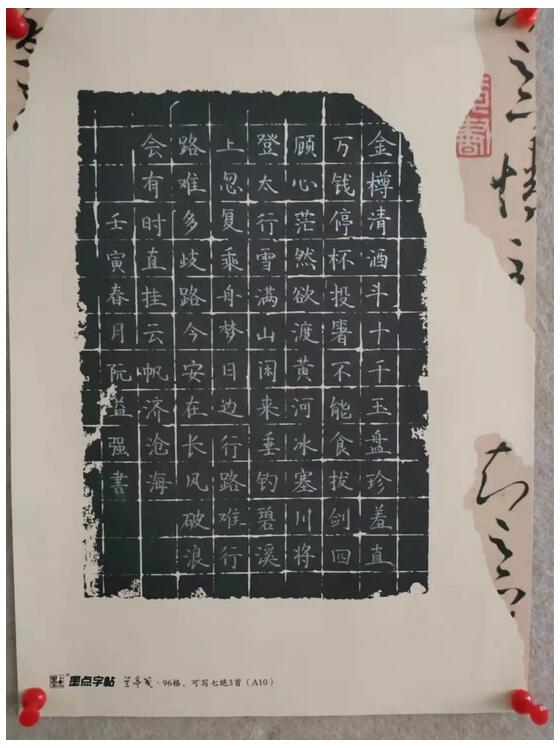 金樽清酒斗十千玉盘珍羞直
万钱停杯投署不能食拔剑四
顾心茫然欲渡黄河冰塞川将
登太行雪满山闲来垂钓碧溪
上忽复乘舟梦日边行路难行
路难多歧路今安在长风破浪
会有时直挂云帆济沧海
壬寅春月阮益强書
墨点字帖 兰亭笺·96格，可写七绝3首（A10）